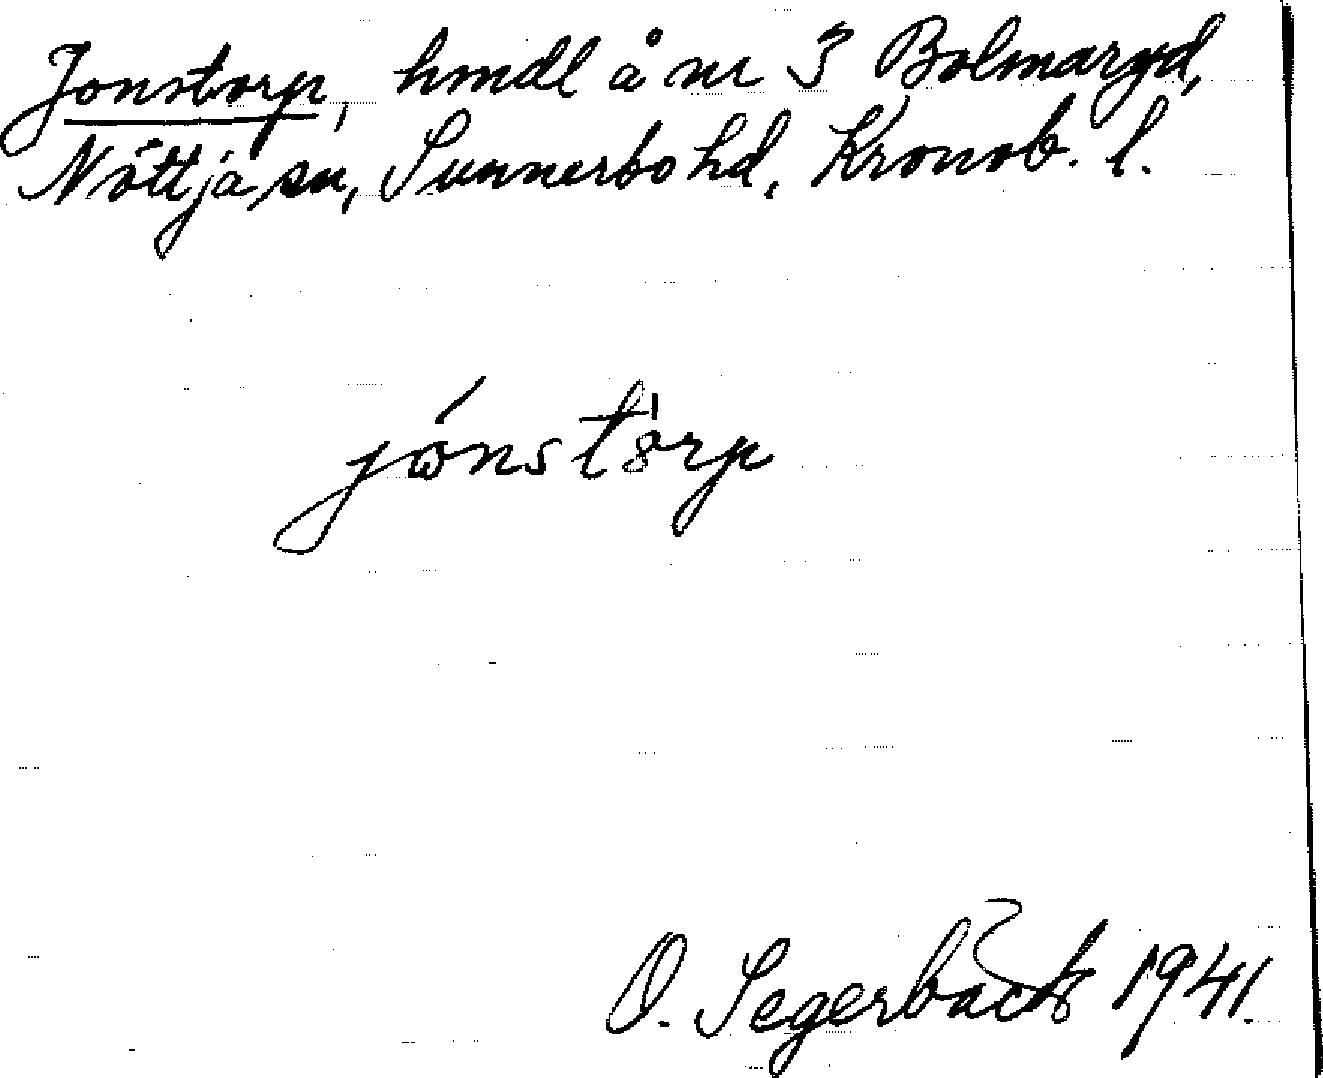 Jonstorp, hmdl å nr 3 Bolmaryd,
Nöttja sn, Sunnerbo hd, Kronob. l.
jónstòrp
O. Segerbäck 1941.